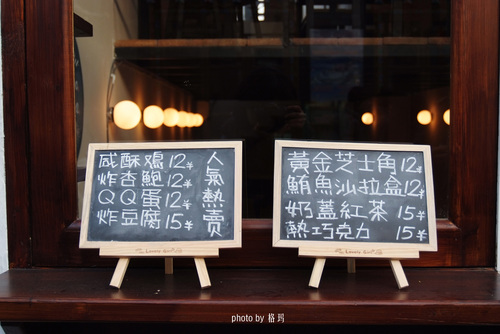 咸酥鷄 12元
炸杏鮑 12元
QQ蛋 12元
炸豆腐 15元
人氣熱賣
黃金芝士角 12元
鮪魚沙拉盒 12元
奶蓋紅茶 15元
熱巧克力 15元
photo by 格瑪